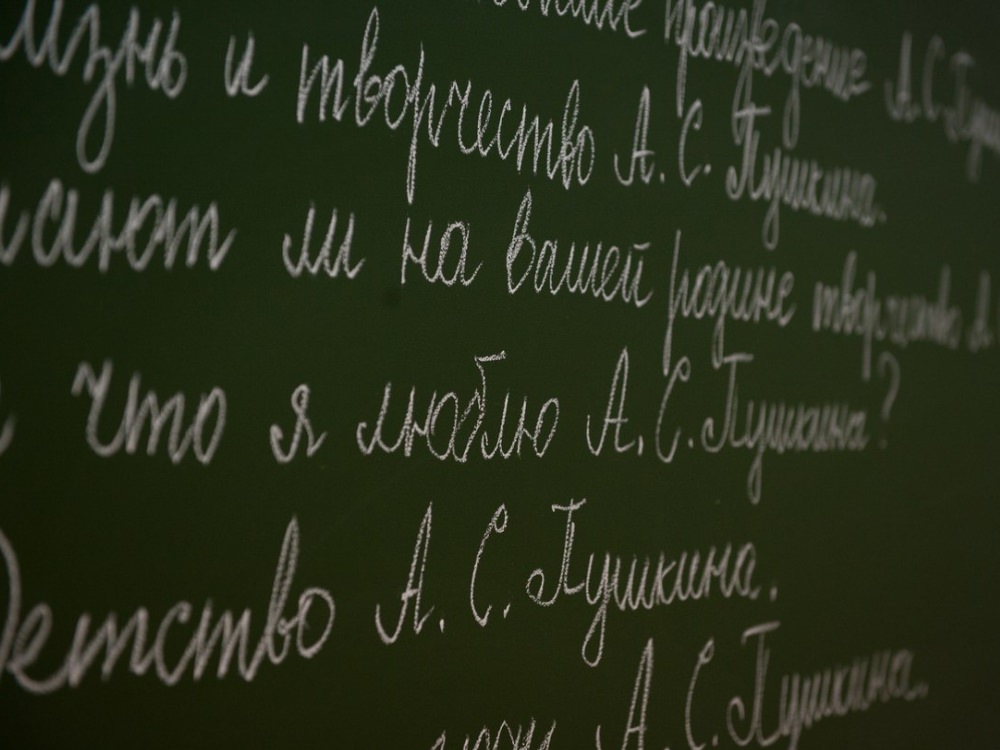 произведение А.С.
изнь и творчество А.С. Пушкина.
ли на вашей родине творчество А.
что я люблю А.С. Пушкина?
Детство А.С. Пушкина.
А.С. Пушкина.